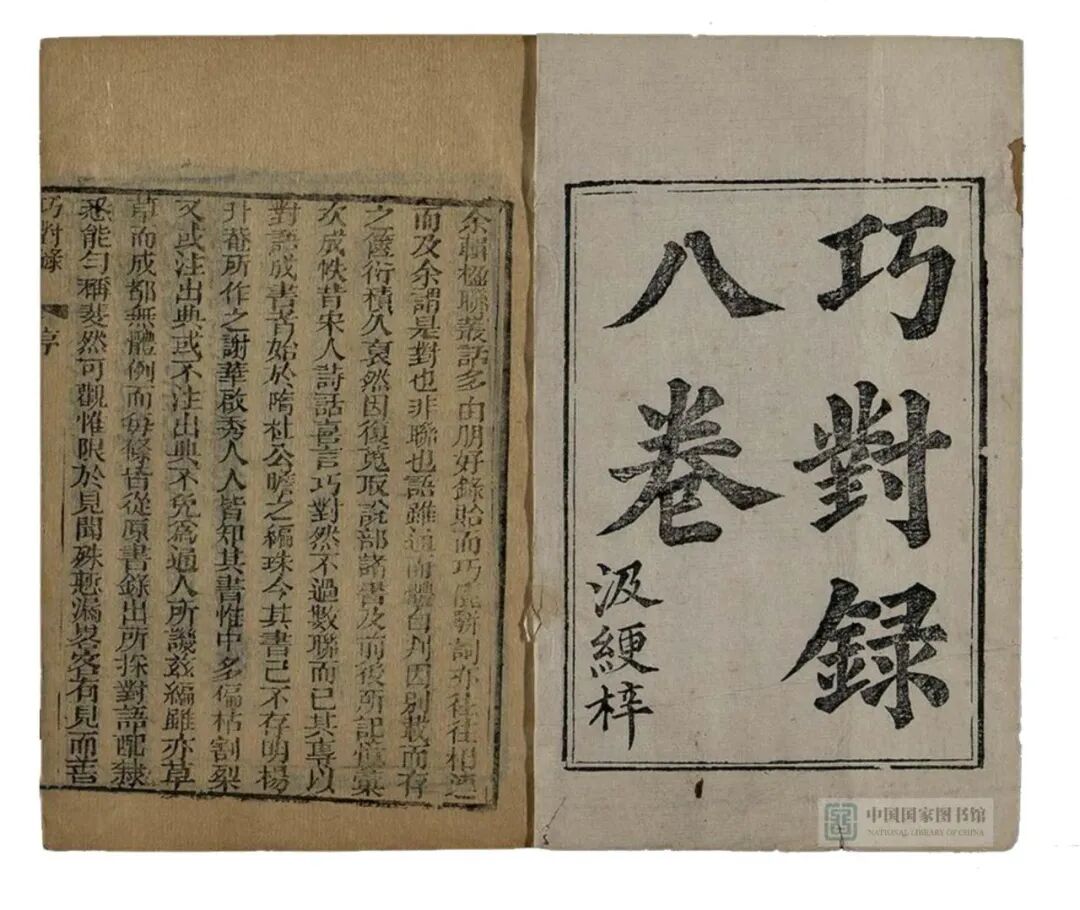 巧對録
八卷
汲綆梓
余輯楹聯叢話多由朋好錄貽而巧麗駢詞亦往往相連
而及余謂是對也非聯也語雖通而體自判因别載而存
之篋衍積久裒然因復蒐取說部諸書及前後所記憶彙
次成帙昔宋人詩話喜言巧對然不過數聯而已其專以
對語成書者始於隋杜公瞻之編珠今其書已不存明楊
升菴所作之謝華啟秀人人皆知其書惟中多偏枯割裂
又或注出典或不注出典不免爲通人所譏茲編雖亦草
草而成都無體例而每條皆從原書錄出所採對語配隸
悉能勻稱斐然可觀惟限於見聞殊慙漏畧客有見而善
巧對錄
序
中国国家图书馆
NATIONAL LIBRARY OF CHINA